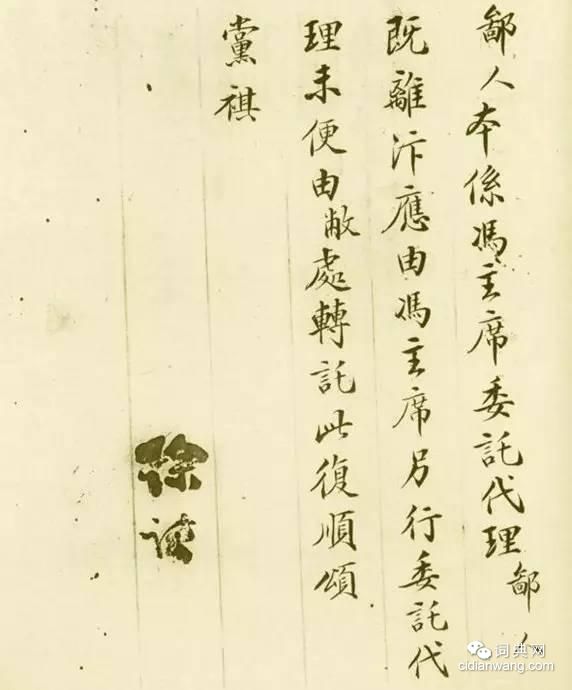 鄙人本係馮主席委託代理鄙人
既離汴應由馮主席另行委託代
理未便由敝處轉託此復順頌
黨祺
徐謙
词典网
cidianwang.com